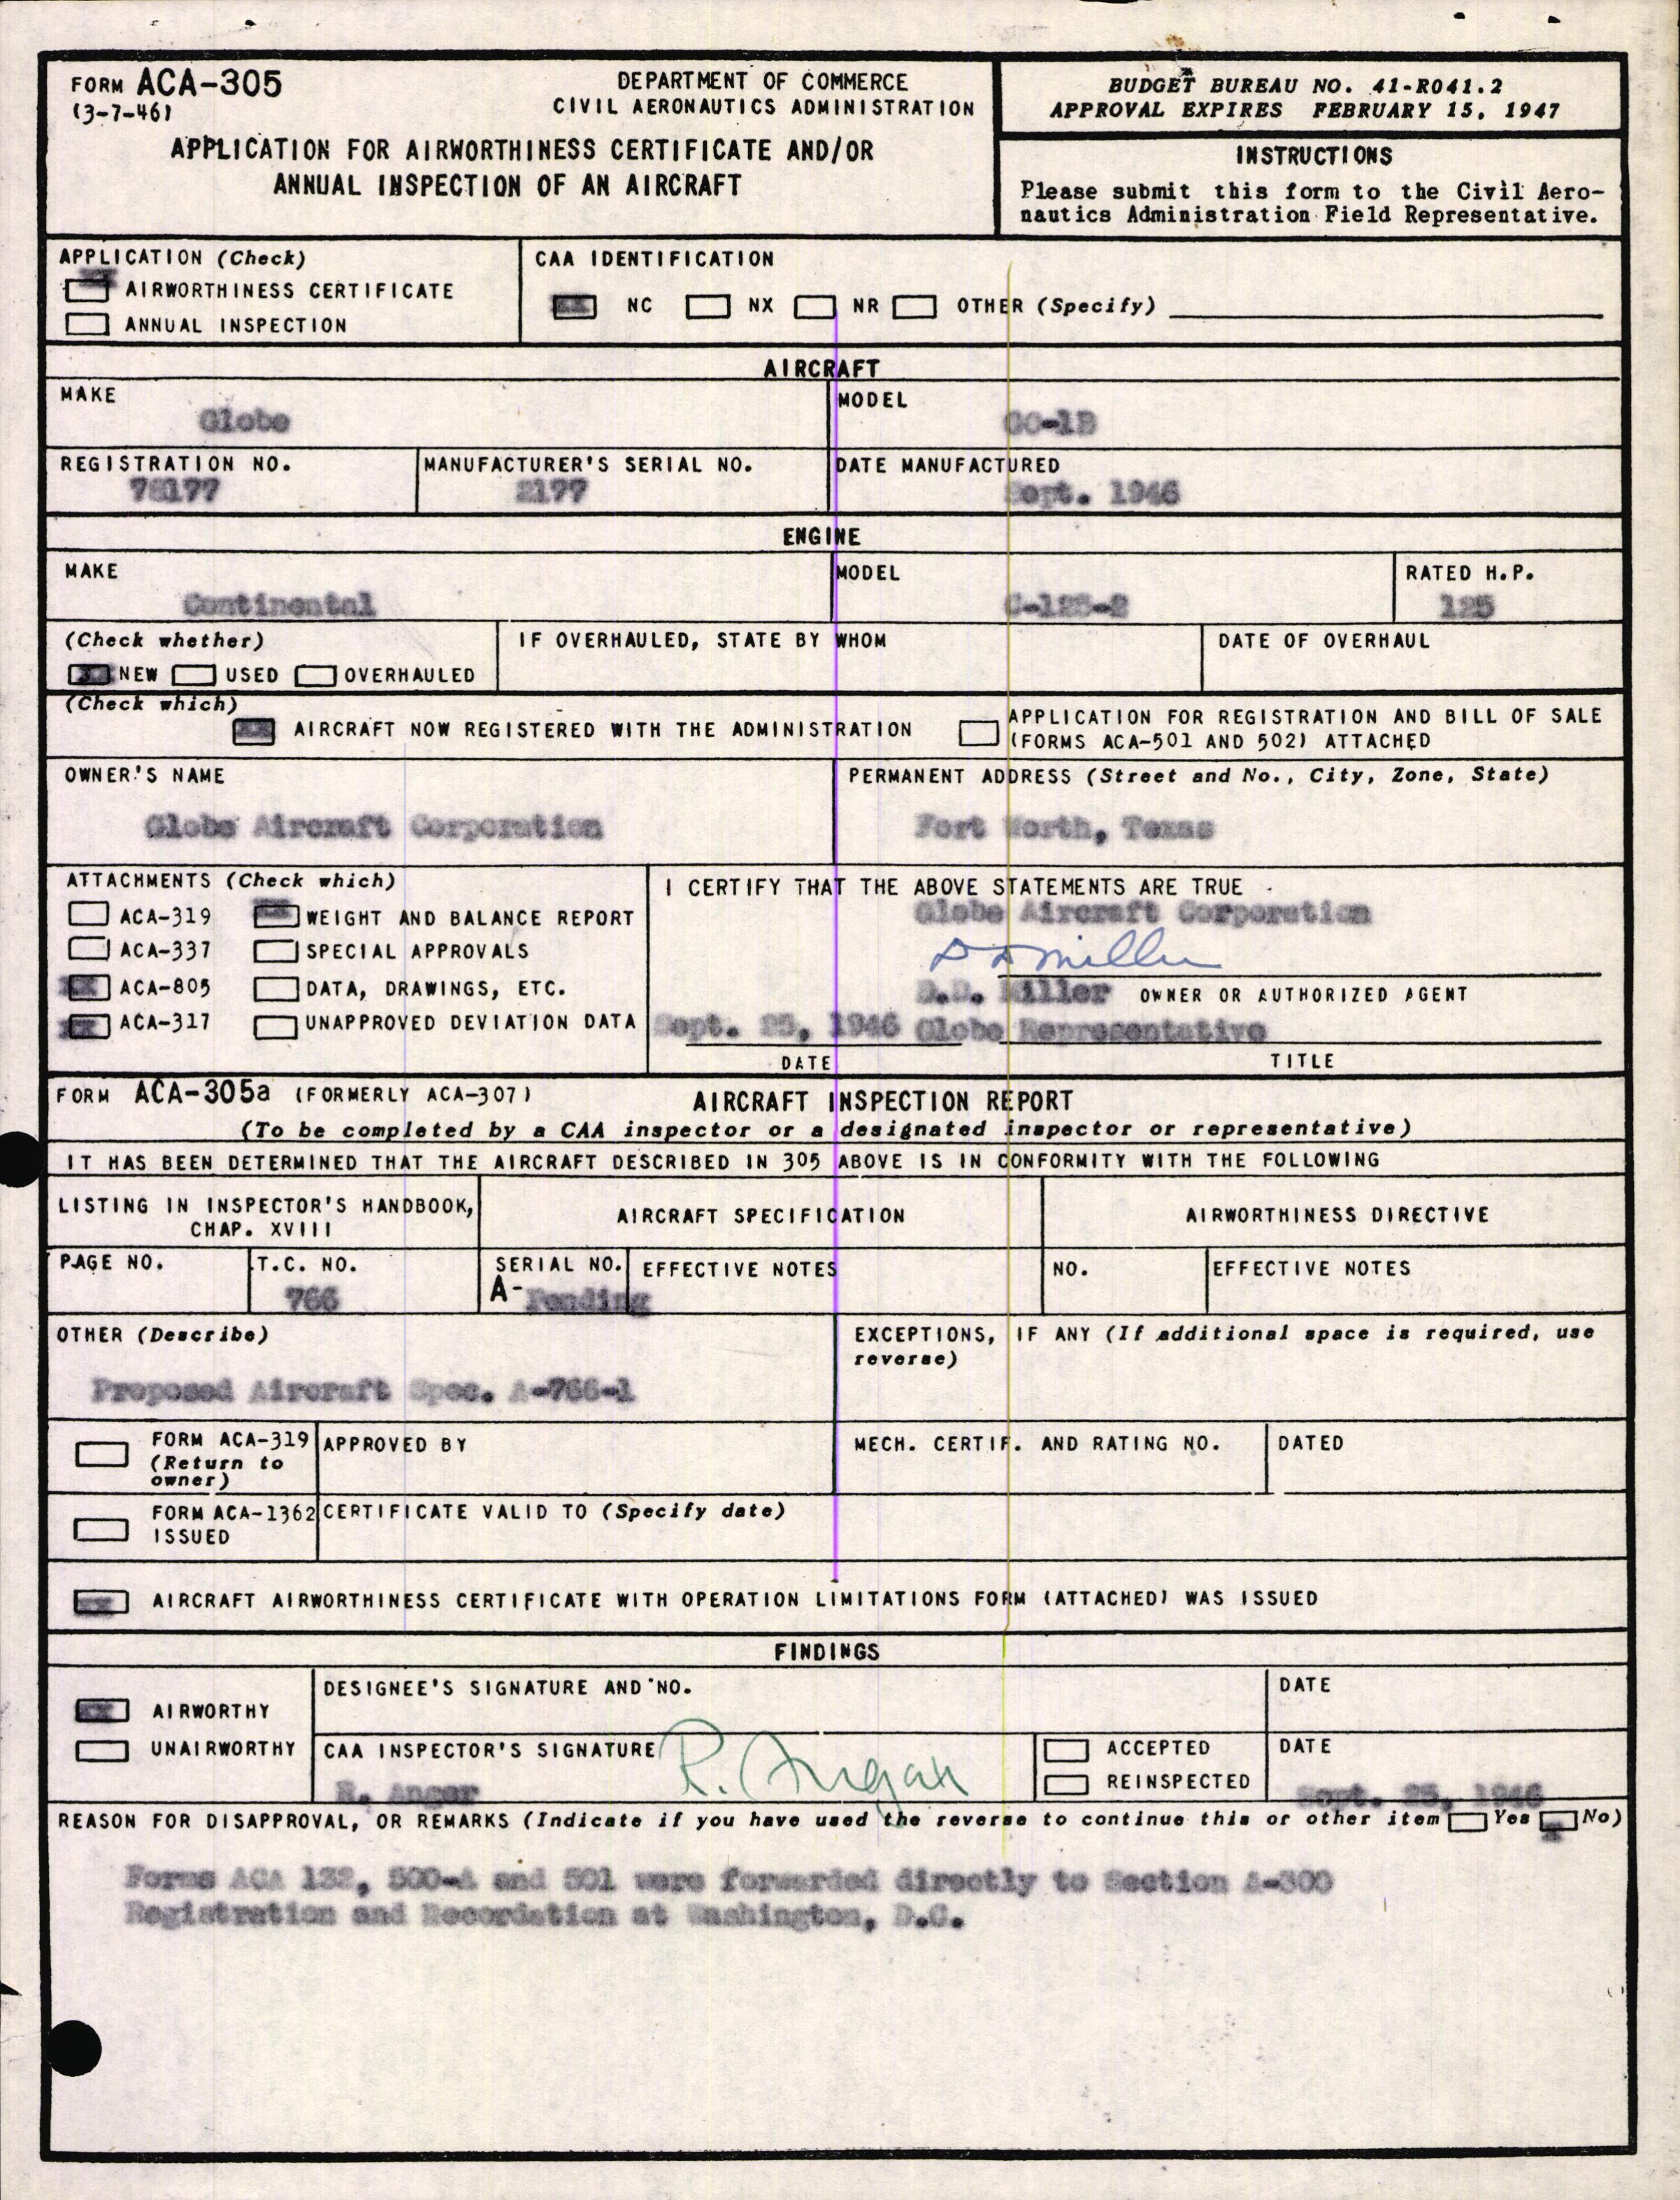 FORM ACA-305
(3-7-46)
DEPARTMENT OF COMMERCE
CIVIL AERONAUTICS ADMINISTRATION
APPLICATION FOR AIRWORTHINESS CERTIFICATE AND/OR
ANNUAL INSPECTION OF AN AIRCRAFT
BUDGET BUREAU NO. 41-R041.2
APPROVAL EXPIRES FEBRUARY 15, 1947
INSTRUCTIONS
Please submit this form to the Civil Aero-
nautics Administration Field Representative.
APPLICATION (Check)
AIRWORTHINESS CERTIFICATE
ANNUAL INSPECTION
CAA IDENTIFICATION
NC NX NR OTHER (Specify)
AIRCRAFT
MAKE
Globe
MODEL
GC-1B
REGISTRATION NO.
78177
MANUFACTURER'S SERIAL NO.
2177
DATE MANUFACTURED
Sept. 1946
ENGINE
MAKE
Continental
MODEL
C-125-2
RATED H.P.
125
(Check whether)
NEW USED OVERHAULED
IF OVERHAULED, STATE BY WHOM
DATE OF OVERHAUL
(Check which)
AIRCRAFT NOW REGISTERED WITH THE ADMINISTRATION
APPLICATION FOR REGISTRATION AND BILL OF SALE
(FORMS ACA-501 AND 502) ATTACHED
OWNER'S NAME
Globe Aircraft Corporation
PERMANENT ADDRESS (Street and No., City, Zone, State)
Fort Worth, Texas
ATTACHMENTS (Check which)
ACA-319 WEIGHT AND BALANCE REPORT
ACA-337 SPECIAL APPROVALS
ACA-805 DATA, DRAWINGS, ETC.
ACA-317 UNAPPROVED DEVIATION DATA
I CERTIFY THAT THE ABOVE STATEMENTS ARE TRUE
Globe Aircraft Corporation
D D Miller
D.D. Miller OWNER OR AUTHORIZED AGENT
Sept. 25, 1946 Globe Representative
DATE
TITLE
FORM ACA-305a (FORMERLY ACA-307)
AIRCRAFT INSPECTION REPORT
(To be completed by a CAA inspector or a designated inspector or representative)
IT HAS BEEN DETERMINED THAT THE AIRCRAFT DESCRIBED IN 305 ABOVE IS IN CONFORMITY WITH THE FOLLOWING
LISTING IN INSPECTOR'S HANDBOOK,
CHAP. XVIII
AIRCRAFT SPECIFICATION
AIRWORTHINESS DIRECTIVE
PAGE NO.
T.C. NO.
766
SERIAL NO.
A- Pending
EFFECTIVE NOTES
NO.
EFFECTIVE NOTES
OTHER (Describe)
Proposed Aircraft Spec. A-766-1
EXCEPTIONS, IF ANY (If additional space is required, use
reverse)
FORM ACA-319
(Return to
owner)
APPROVED BY
MECH. CERTIF. AND RATING NO.
DATED
FORM ACA-1362
ISSUED
CERTIFICATE VALID TO (Specify date)
AIRCRAFT AIRWORTHINESS CERTIFICATE WITH OPERATION LIMITATIONS FORM (ATTACHED) WAS ISSUED
FINDINGS
AIRWORTHY
UNAIRWORTHY
DESIGNEE'S SIGNATURE AND NO.
DATE
CAA INSPECTOR'S SIGNATURE
R. Anger
ACCEPTED
REINSPECTED
DATE
Sept. 25, 1946
REASON FOR DISAPPROVAL, OR REMARKS (Indicate if you have used the reverse to continue this or other item Yes No)
Forms ACA 132, 500-A and 501 were forwarded directly to Section A-300
Registration and Recordation at Washington, D.C.